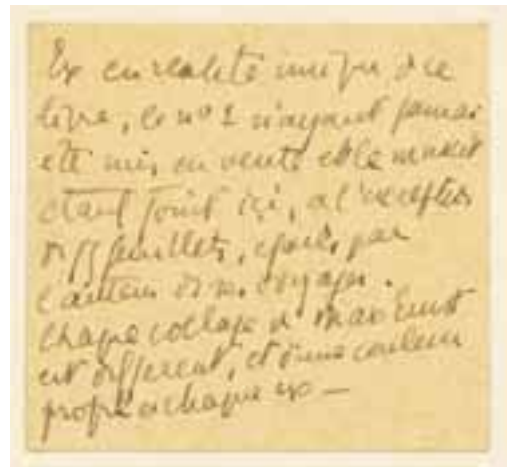 Ex en realité unique de ce
livre, le nº 1 n'ayant jamais
été mis en vente et le manust
étant joint ici, a l'exception
des feuillets, égarés par
l'auteur ds ses voyages.
chaque collage de Max Ernst
est different, et d'une couleur
propre a chaque ex —